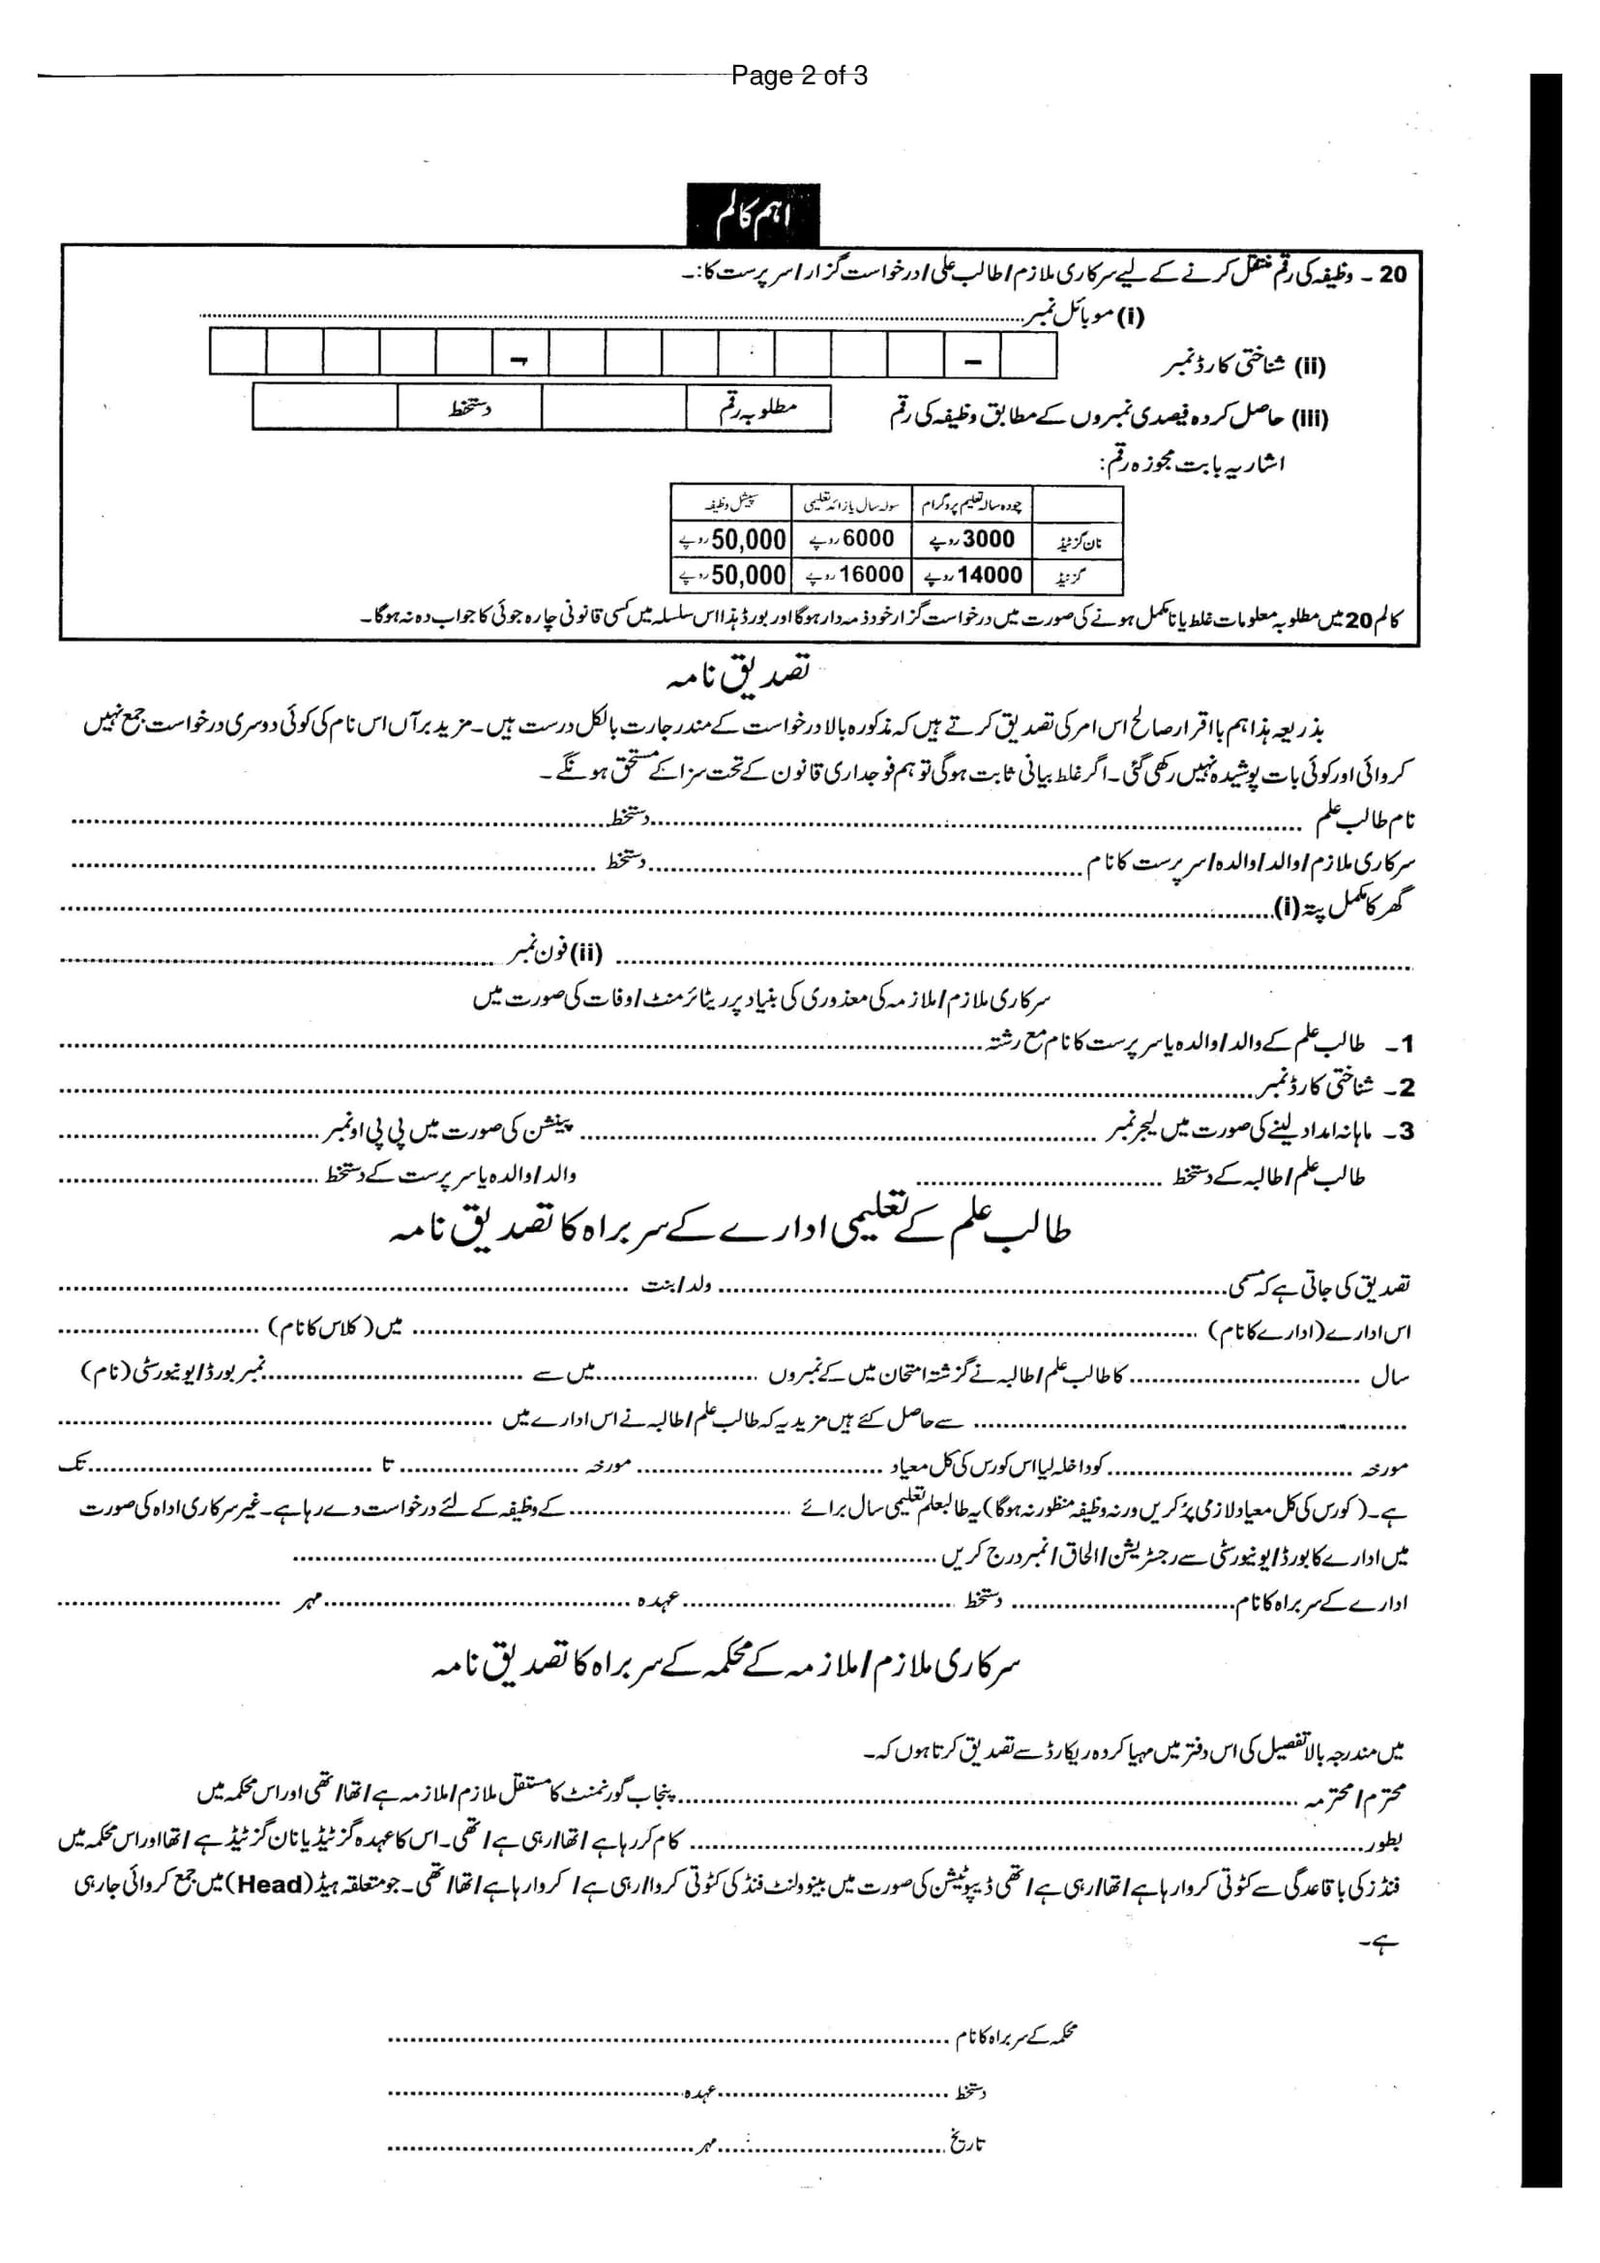 Page 2 of 3
اہم کالم
20 ۔ وظیفہ کی رقم منتقل کرنے کے لیے سرکاری ملازم/طالب علی/درخواست گزار/سرپرست کا:۔
(i) موبائل نمبر........................
(ii) شناختی کارڈ نمبر – –
(iii) حاصل کردہ فیصدی نمبروں کے مطابق وظیفہ کی رقم مطلوبہ رقم دستخط
اشاریہ بابت مجوزہ رقم:
چودہ سالہ تعلیم پروگرام سولہ سال یا زائد تعلیمی سپیشل وظیفہ
نان گزٹیڈ 3000 روپے 6000 روپے 50,000 روپے
گزٹیڈ 14000 روپے 16000 روپے 50,000 روپے
کالم 20 میں مطلوبہ معلومات غلط یا نامکمل ہونے کی صورت میں درخواست گزار خود ذمہ دار ہوگا اور بورڈ ہذا اس سلسلہ میں کسی قانونی چارہ جوئی کا جواب دہ نہ ہوگا۔
تصدیق نامہ
بذریعہ ہذا ہم بااقرار صالح اس امر کی تصدیق کرتے ہیں کہ مذکورہ بالا درخواست کے مندرجارت بالکل درست ہیں۔ مزید برآں اس نام کی کوئی دوسری درخواست جمع نہیں
کروائی اور کوئی بات پوشیدہ نہیں رکھی گئی۔ اگر غلط بیانی ثابت ہوگی تو ہم فوجداری قانون کے تحت سزا کے مستحق ہونگے۔
نام طالب علم ........................ دستخط ........................
سرکاری ملازم/والد/والدہ/سرپرست کا نام ........................ دستخط ........................
گھر کا مکمل پتہ (i) ........................
........................ (ii) فون نمبر ........................
سرکاری ملازم/ملازمہ کی معذوری کی بنیاد پر ریٹائرمنٹ/وفات کی صورت میں
1۔ طالب علم کے والد/والدہ یا سرپرست کا نام مع رشتہ ........................
2۔ شناختی کارڈ نمبر ........................
3۔ ماہانہ امداد لینے کی صورت میں لیجر نمبر ........................ پینشن کی صورت میں پی پی او نمبر ........................
طالب علم/طالبہ کے دستخط ........................ والد/والدہ یا سرپرست کے دستخط ........................
طالب علم کے تعلیمی ادارے کے سربراہ کا تصدیق نامہ
تصدیق کی جاتی ہے کہ مسمی ........................ ولد/بنت ........................
اس ادارے (ادارے کا نام) ........................ میں (کلاس کا نام) ........................
سال ........................ کا طالب علم/طالبہ نے گزشتہ امتحان میں کے نمبروں ........................ میں سے ........................ نمبر بورڈ/یونیورسٹی (نام)
........................ سے حاصل کئے ہیں مزید یہ کہ طالب علم/طالبہ نے اس ادارے میں ........................
مورخہ ........................ کو داخلہ لیا اس کورس کی کل معیاد ........................ مورخہ ........................ تا ........................ تک
ہے۔ (کورس کی کل معیاد لازمی پُر کریں ورنہ وظیفہ منظور نہ ہوگا) یہ طالبعلم تعلیمی سال برائے ........................ کے وظیفہ کے لئے درخواست دے رہا ہے۔ غیر سرکاری اداہ کی صورت
میں ادارے کا بورڈ/یونیورسٹی سے رجسٹریشن/الحاق/نمبر درج کریں ........................
ادارے کے سربراہ کا نام ........................ دستخط ........................ عہدہ ........................ مہر ........................
سرکاری ملازم/ملازمہ کے محکمہ کے سربراہ کا تصدیق نامہ
میں مندرجہ بالا تفصیل کی اس دفتر میں مہیا کردہ ریکارڈ سے تصدیق کرتا ہوں کہ۔
محترم/محترمہ ........................ پنجاب گورنمنٹ کا مستقل ملازم/ملازمہ ہے/تھا/تھی اور اس محکمہ میں
بطور ........................ کام کر رہا ہے/تھا/رہی ہے/تھی۔ اس کا عہدہ گزٹیڈ یا نان گزٹیڈ ہے/تھا اور اس محکمہ میں
فنڈز کی باقاعدگی سے کٹوتی کروا رہا ہے/تھا/رہی ہے/تھی ڈیپوٹیشن کی صورت میں بینوولنٹ فنڈ کی کٹوتی کروا/رہی ہے/ کروا رہا ہے/تھا/تھی۔ جو متعلقہ ہیڈ (Head) میں جمع کروائی جارہی
ہے۔
محکمہ کے سربراہ کا نام ........................
دستخط ........................ عہدہ ........................
تاریخ ........................ مہر ........................